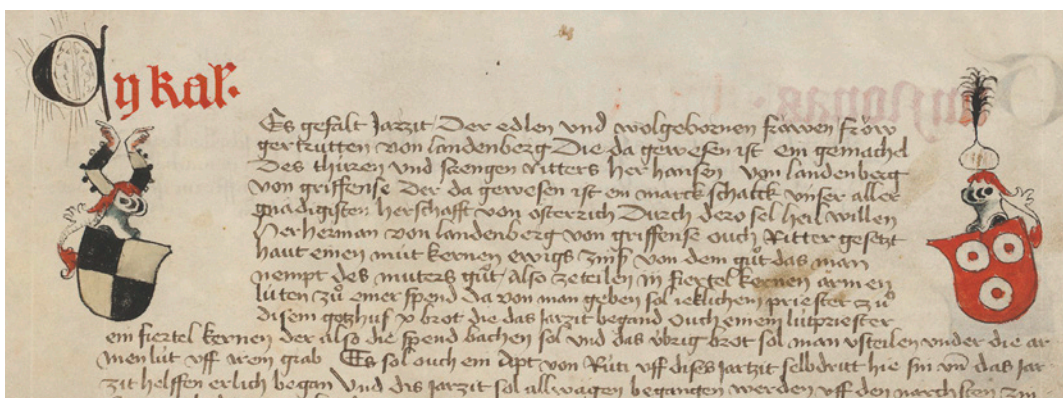 A ij kal.
Es gefalt Jarzit Der edlen vnd wolgebornen frowen frow
gertrutten von landenberg Die da gewesen ist ein gemachel
Des thüren vnd strengen ritters her hansen von landenberg
von griffense Der da gewesen ist ein marckschalck vnser aller
gnädigisten herschafft von österrich Durch dero sel heil willen
Her herman von landenberg von griffense ouch Ritter gesetzt
haut einen müt kernen ewigs zinß von dem gůt das man
nempt des muters gůt also zeteilen iij fiertel kernen armen
lüten zů einer spend da von man geben sol ieklichem priester zů
disem gotzhus x brot die das Jarzit begand Ouch einem lütpriester
ein fiertel kernen der also die spend bachen sol vnd das übrig brot sol man vsteilen vnder die ar
men lüt vff irem grab Es sol ouch ein Apt von Rüti vff dises Jartzit selbdritt hie sin vnd das Jar
zit helffen erlich began Vnd dis Jarzit sol allwägen begangen werden vff den nächsten zin